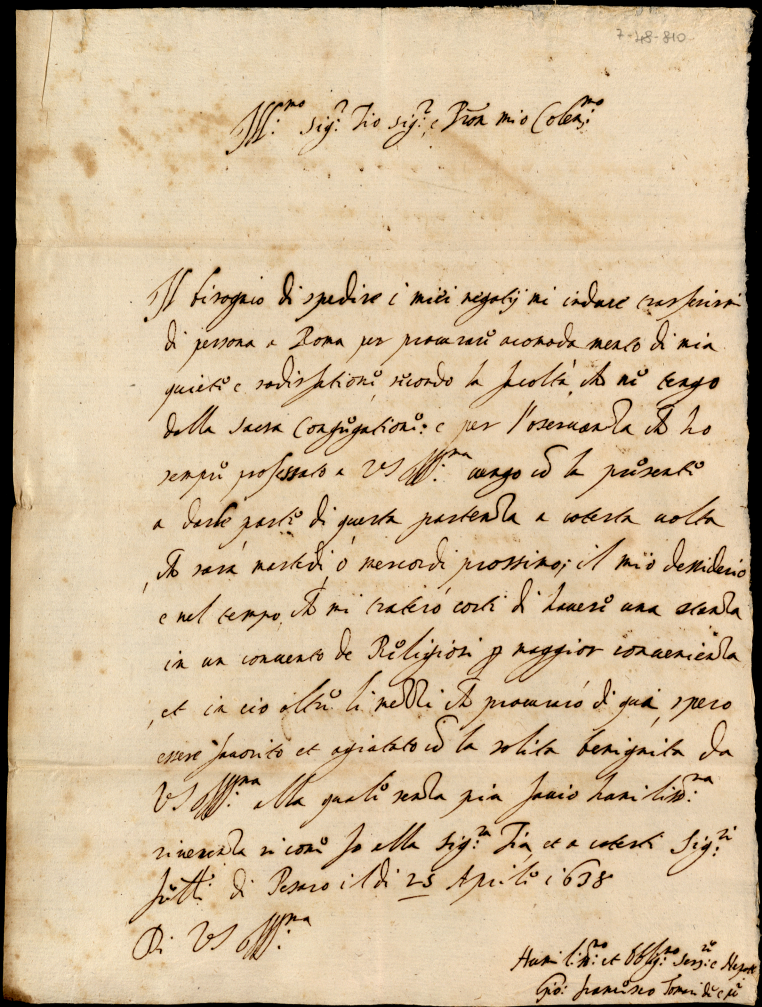 7-48-810
Ill.mo Sig.r Zio Sig.r e Pron mio Colen.mo
Il bisognio di spedire i miei negotij mi induce trasferirmi
di persona a Roma per procurare acomodamento di mia
quiete e sodisfatione, secondo la facoltà che ne tengo
dalla Sacra Congregatione: e per l'oservanza che ho
sempre professato a VS Ill.ma vengo cō la presente
a darle parte di questa partenza a cotesta volta
che sarà martedì, ò mercordi prossimo; il mio dessiderio
e nel tempo che mi traterò costi di havere una stanza
in un convento de Religiosi p maggior convenienza
et in cio oltre li mezzi che procurarò di qua, spero
essere favorito et agiutato cō la solita benignita da
VS Ill.ma alla quale senza piu faccio humiliss.ma
riverenza si come fo alla Sig.ra Zia, et a cotesti Sig.ri
tutti di Pesaro il dì 25 Aprile 1638
Di VS Ill.ma
Humiliss.mo et Obblig.mo Ser.re e Nepote
Gio: Francesco